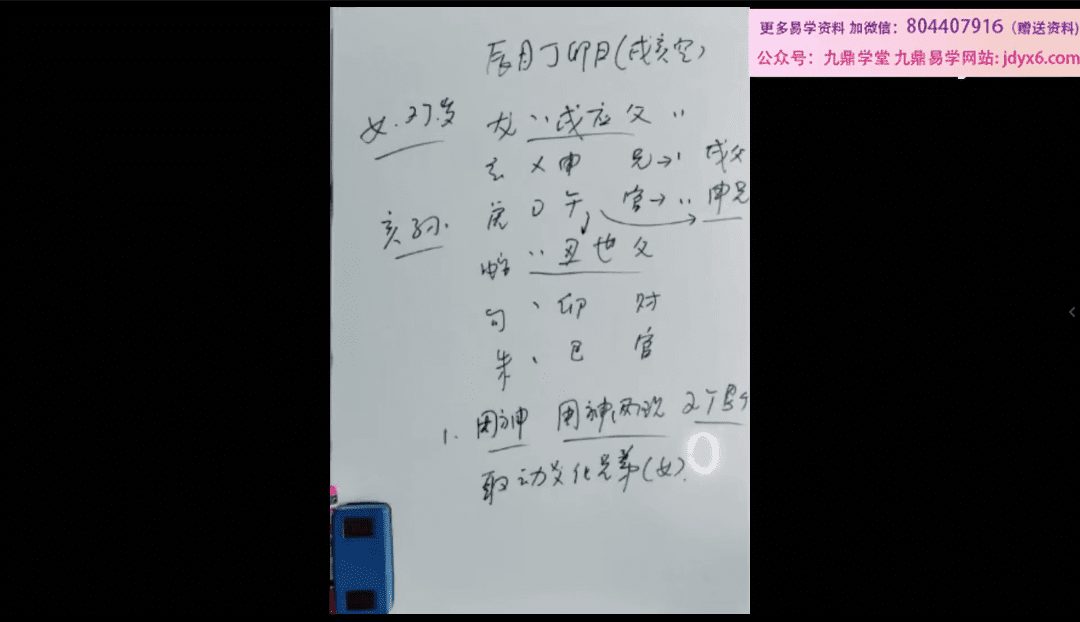 更多易学资料 加微信：804407916（赠送资料）
公众号：九鼎学堂 九鼎易学网站: jdyx6.com
辰月丁卯日(戌亥空)
女.27.岁
龙 〃 戌应父 〃
玄 X 申 兄→、 戌父
亥孙.
虎 O 午 官→〃 申兄
〃 丑世父
句 、 卯 财
朱 、 巳 官
1. 用神 用神两现 2个
取动爻化兄弟(女).